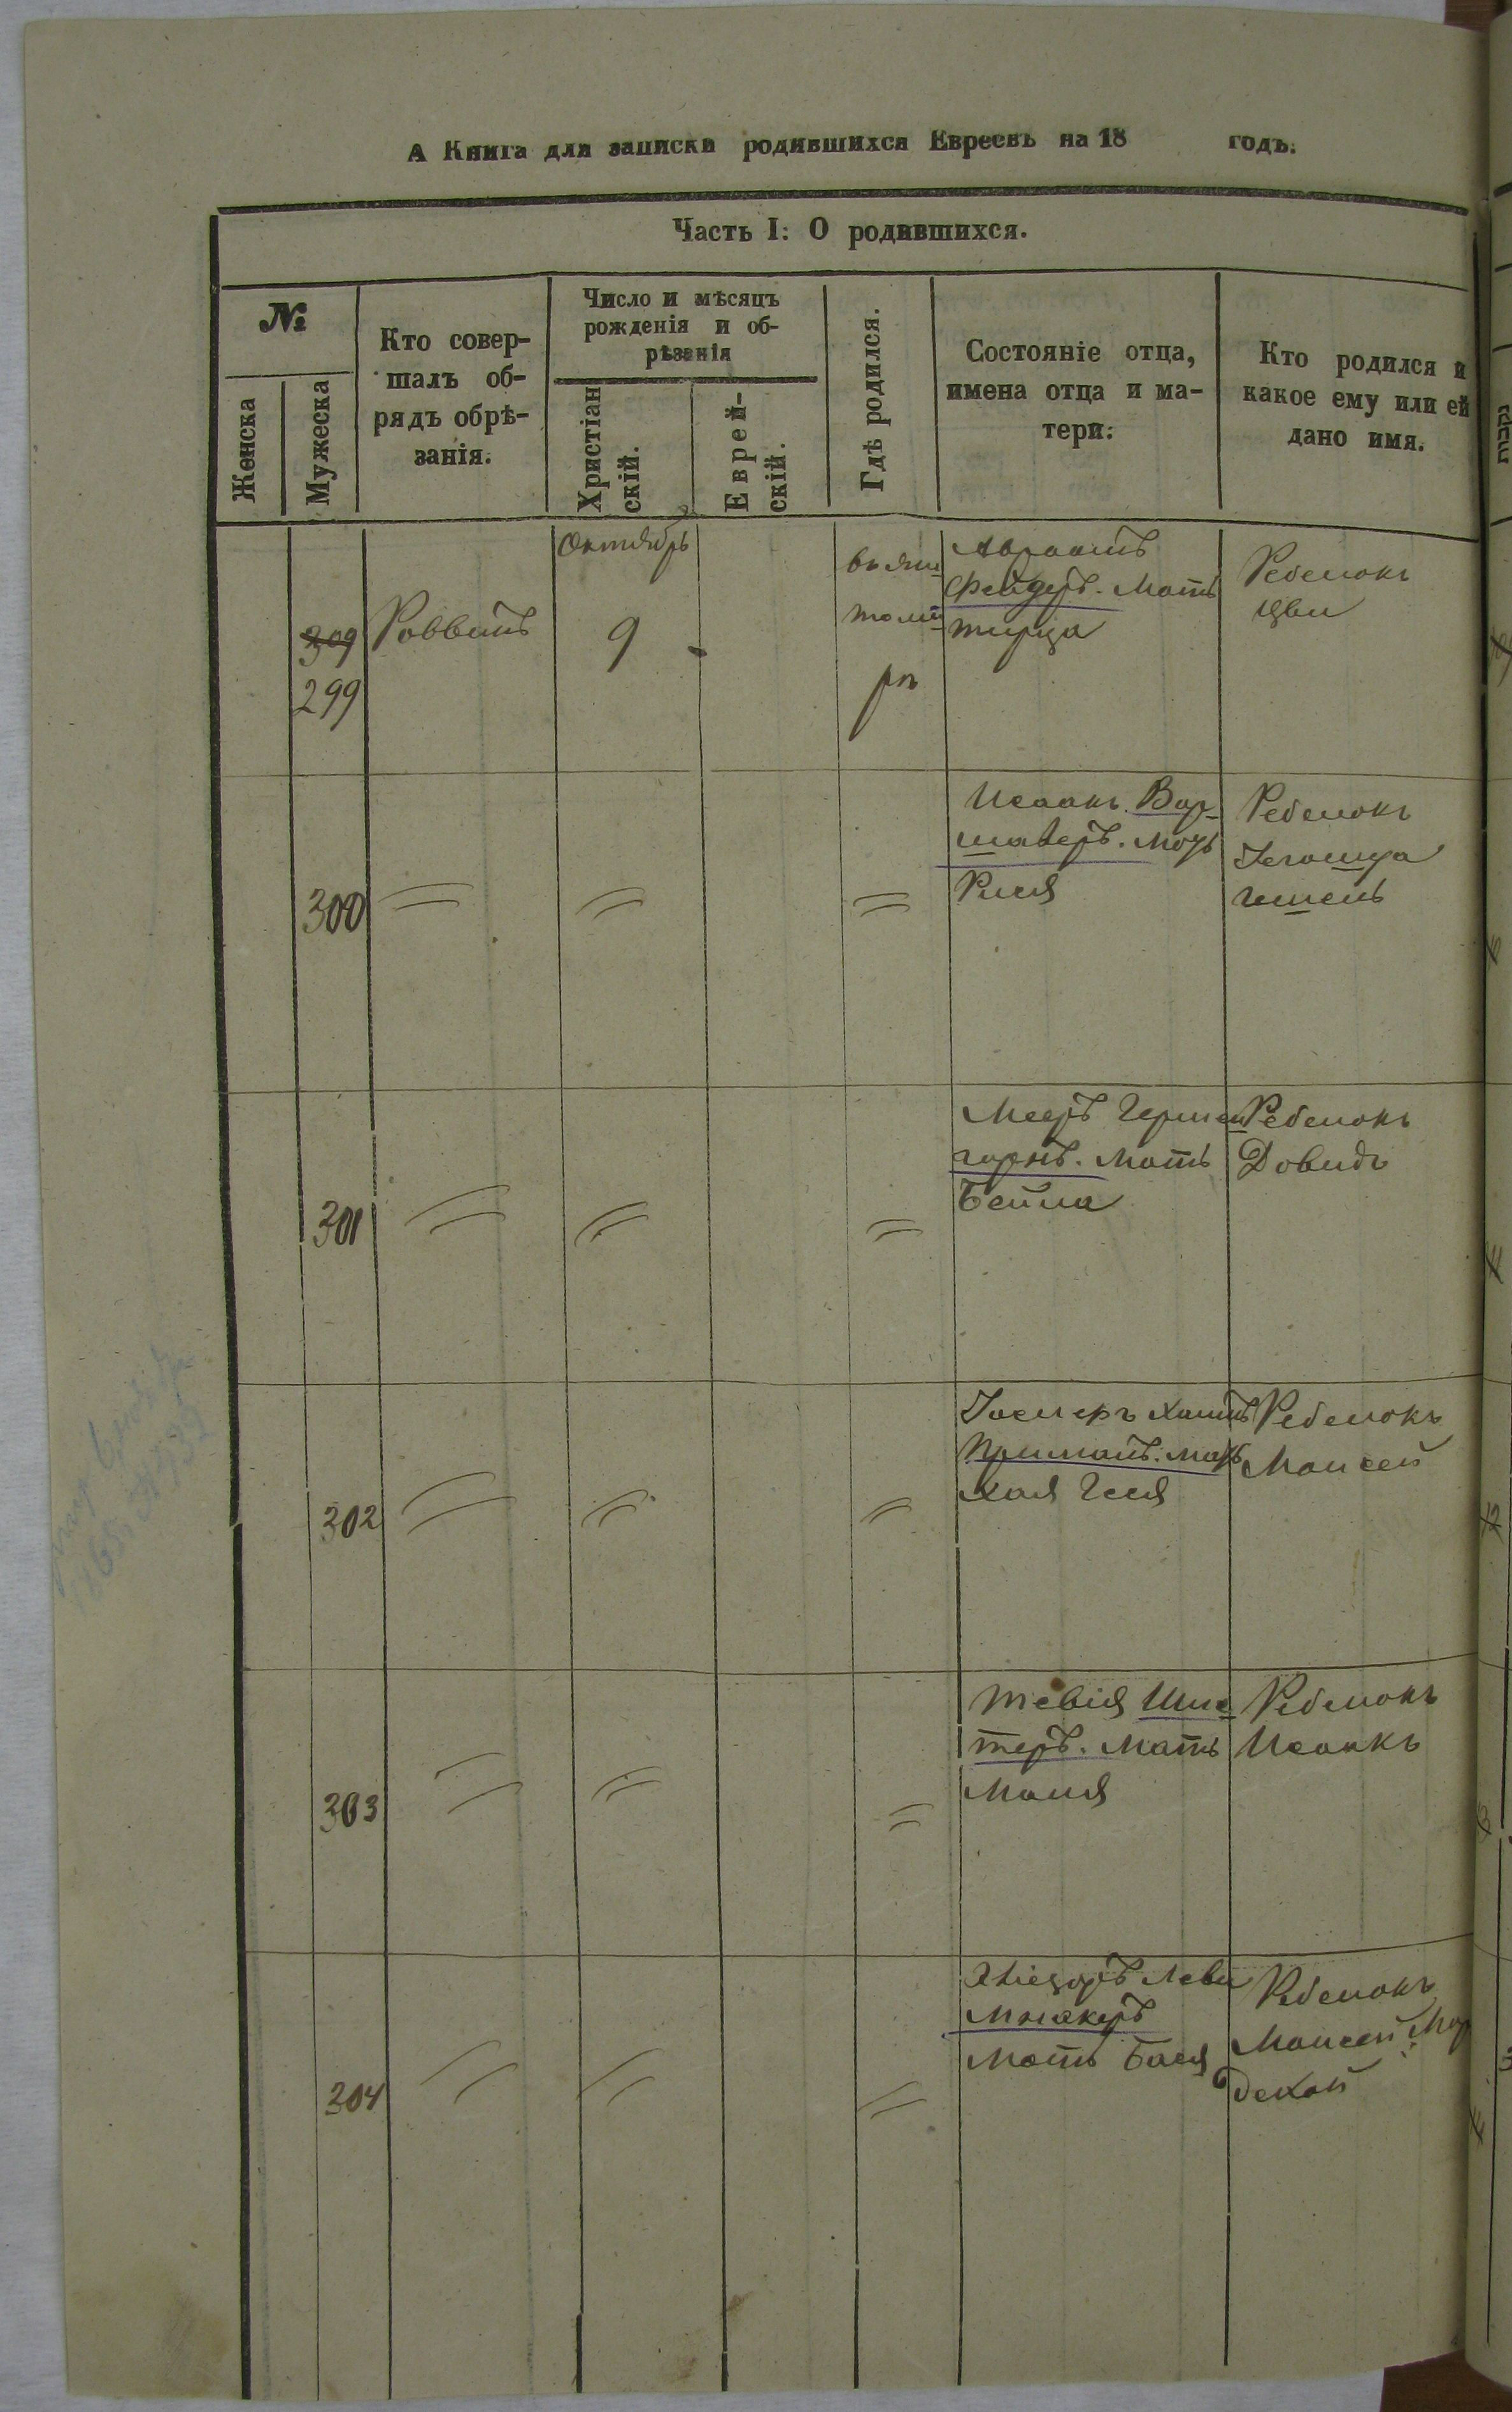 А Книга для записки родившихся Евреевъ на 18 годъ.
Часть I: О родившихся.
№
Женска
Мужеска
Кто совер-
шалъ об-
рядъ обрѣ-
занія.
Число и мѣсяцъ
рожденія и об-
рѣзанія
Христіан
скій.
Еврей-
скій.
Гдѣ родился.
Состояніе отца,
имена отца и ма-
тери.
Кто родился и
какое ему или ей
дано имя.
Октябрь
309
299
Роввинъ
9
въ Жи
томи
рѣ
Авраамъ
Фейдеръ. Мать
тирца
Ребенокъ
Цви
300
Исаакъ Вар-
шаверъ. Мать
Рися
Ребенокъ
Іегошуа
Гешель
301
Мееръ Гершен
горнъ. Мать
Бейла
Ребенокъ
Довидъ
302
Хаимъ
Мать
Хая Геся
Ребенокъ
Моисей
303
Тевія Шус
теръ. Мать
Маня
Ребенокъ
Исаакъ
304
Эліезаръ Леви
Млнакеръ
Мать Бася
Ребенокъ
Моисей Мор
дехай